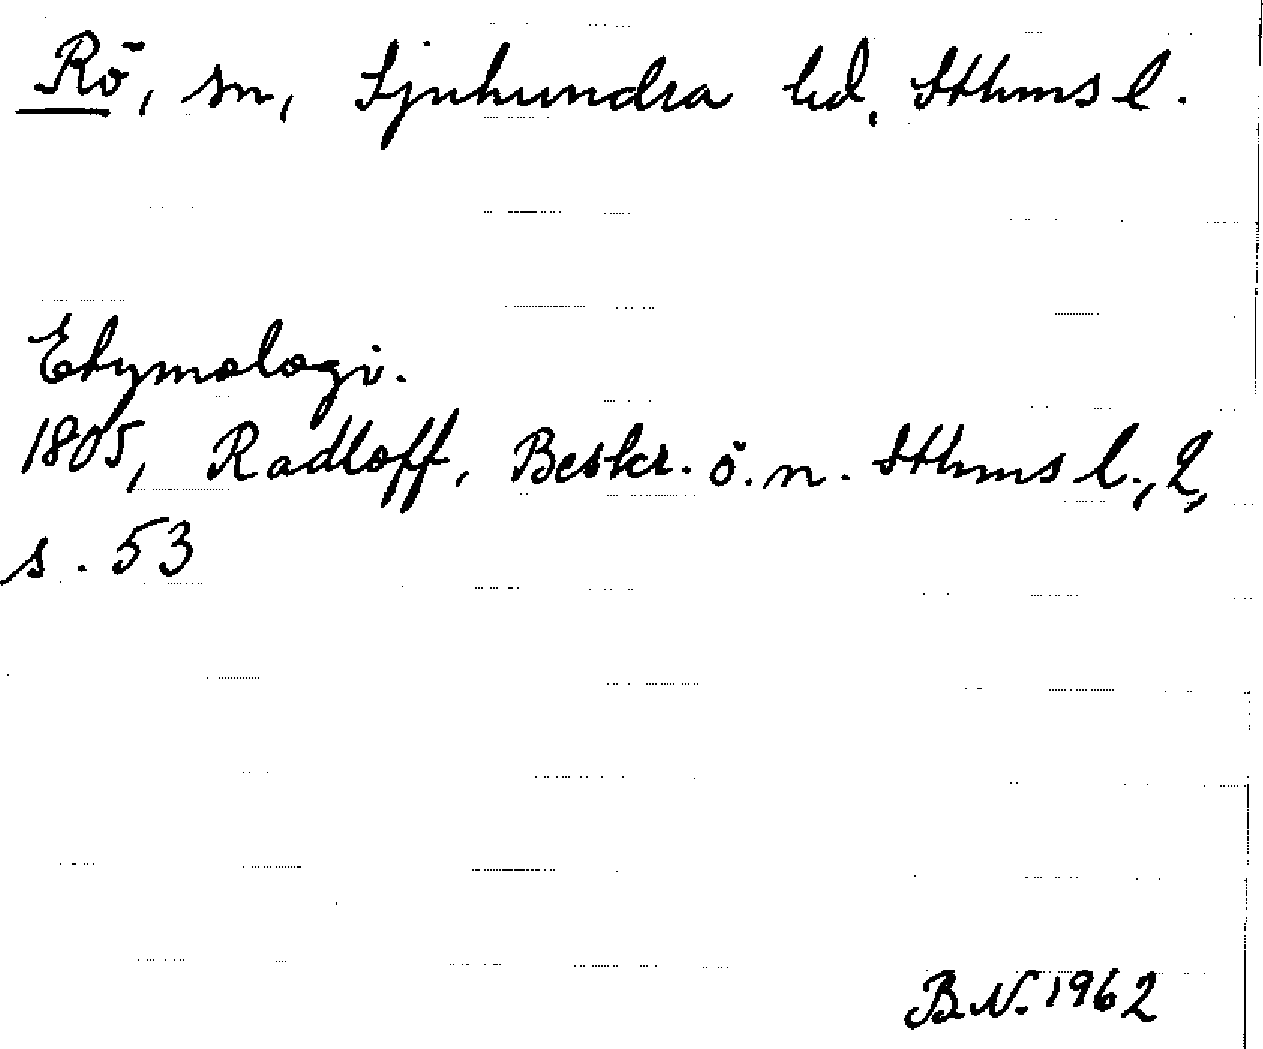 Rö, sn, Sjuhundra hd, Sthms l.
Etymologi.
1805, Radloff, Beskr. ö. n. Sthms l., 2,
s. 53
B.N. 1962